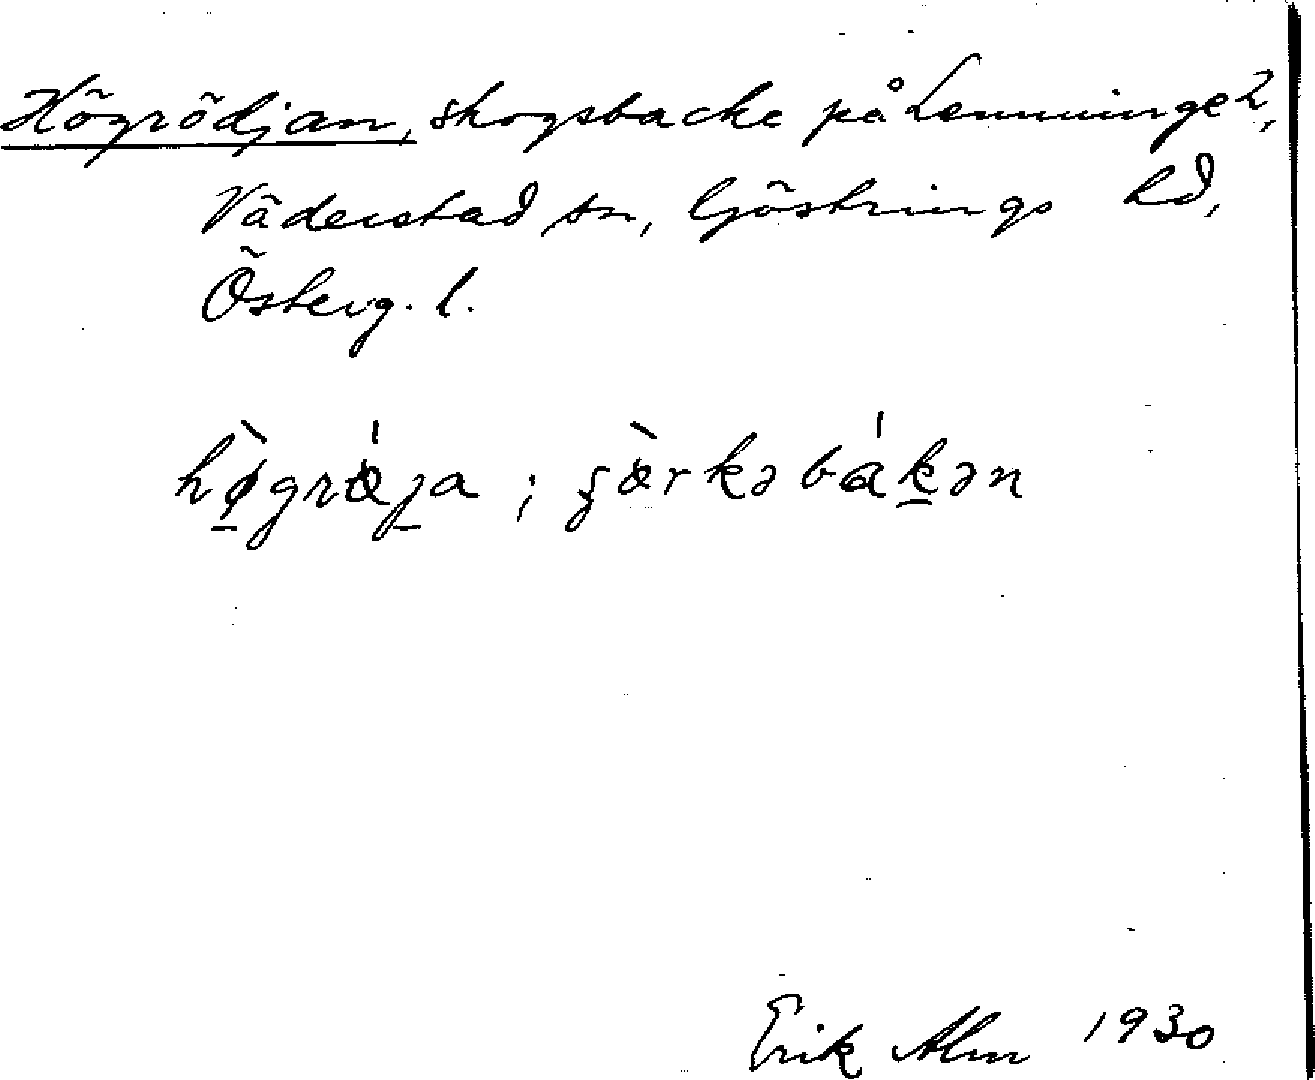 Högrödjan, skogsbacke på Lemminge 2,
Väderstad sn, Göstrings hd,
Österg. l.
hø̀grǿȷa ; ʂœ̀rkəbákən
Erik Alm 1930